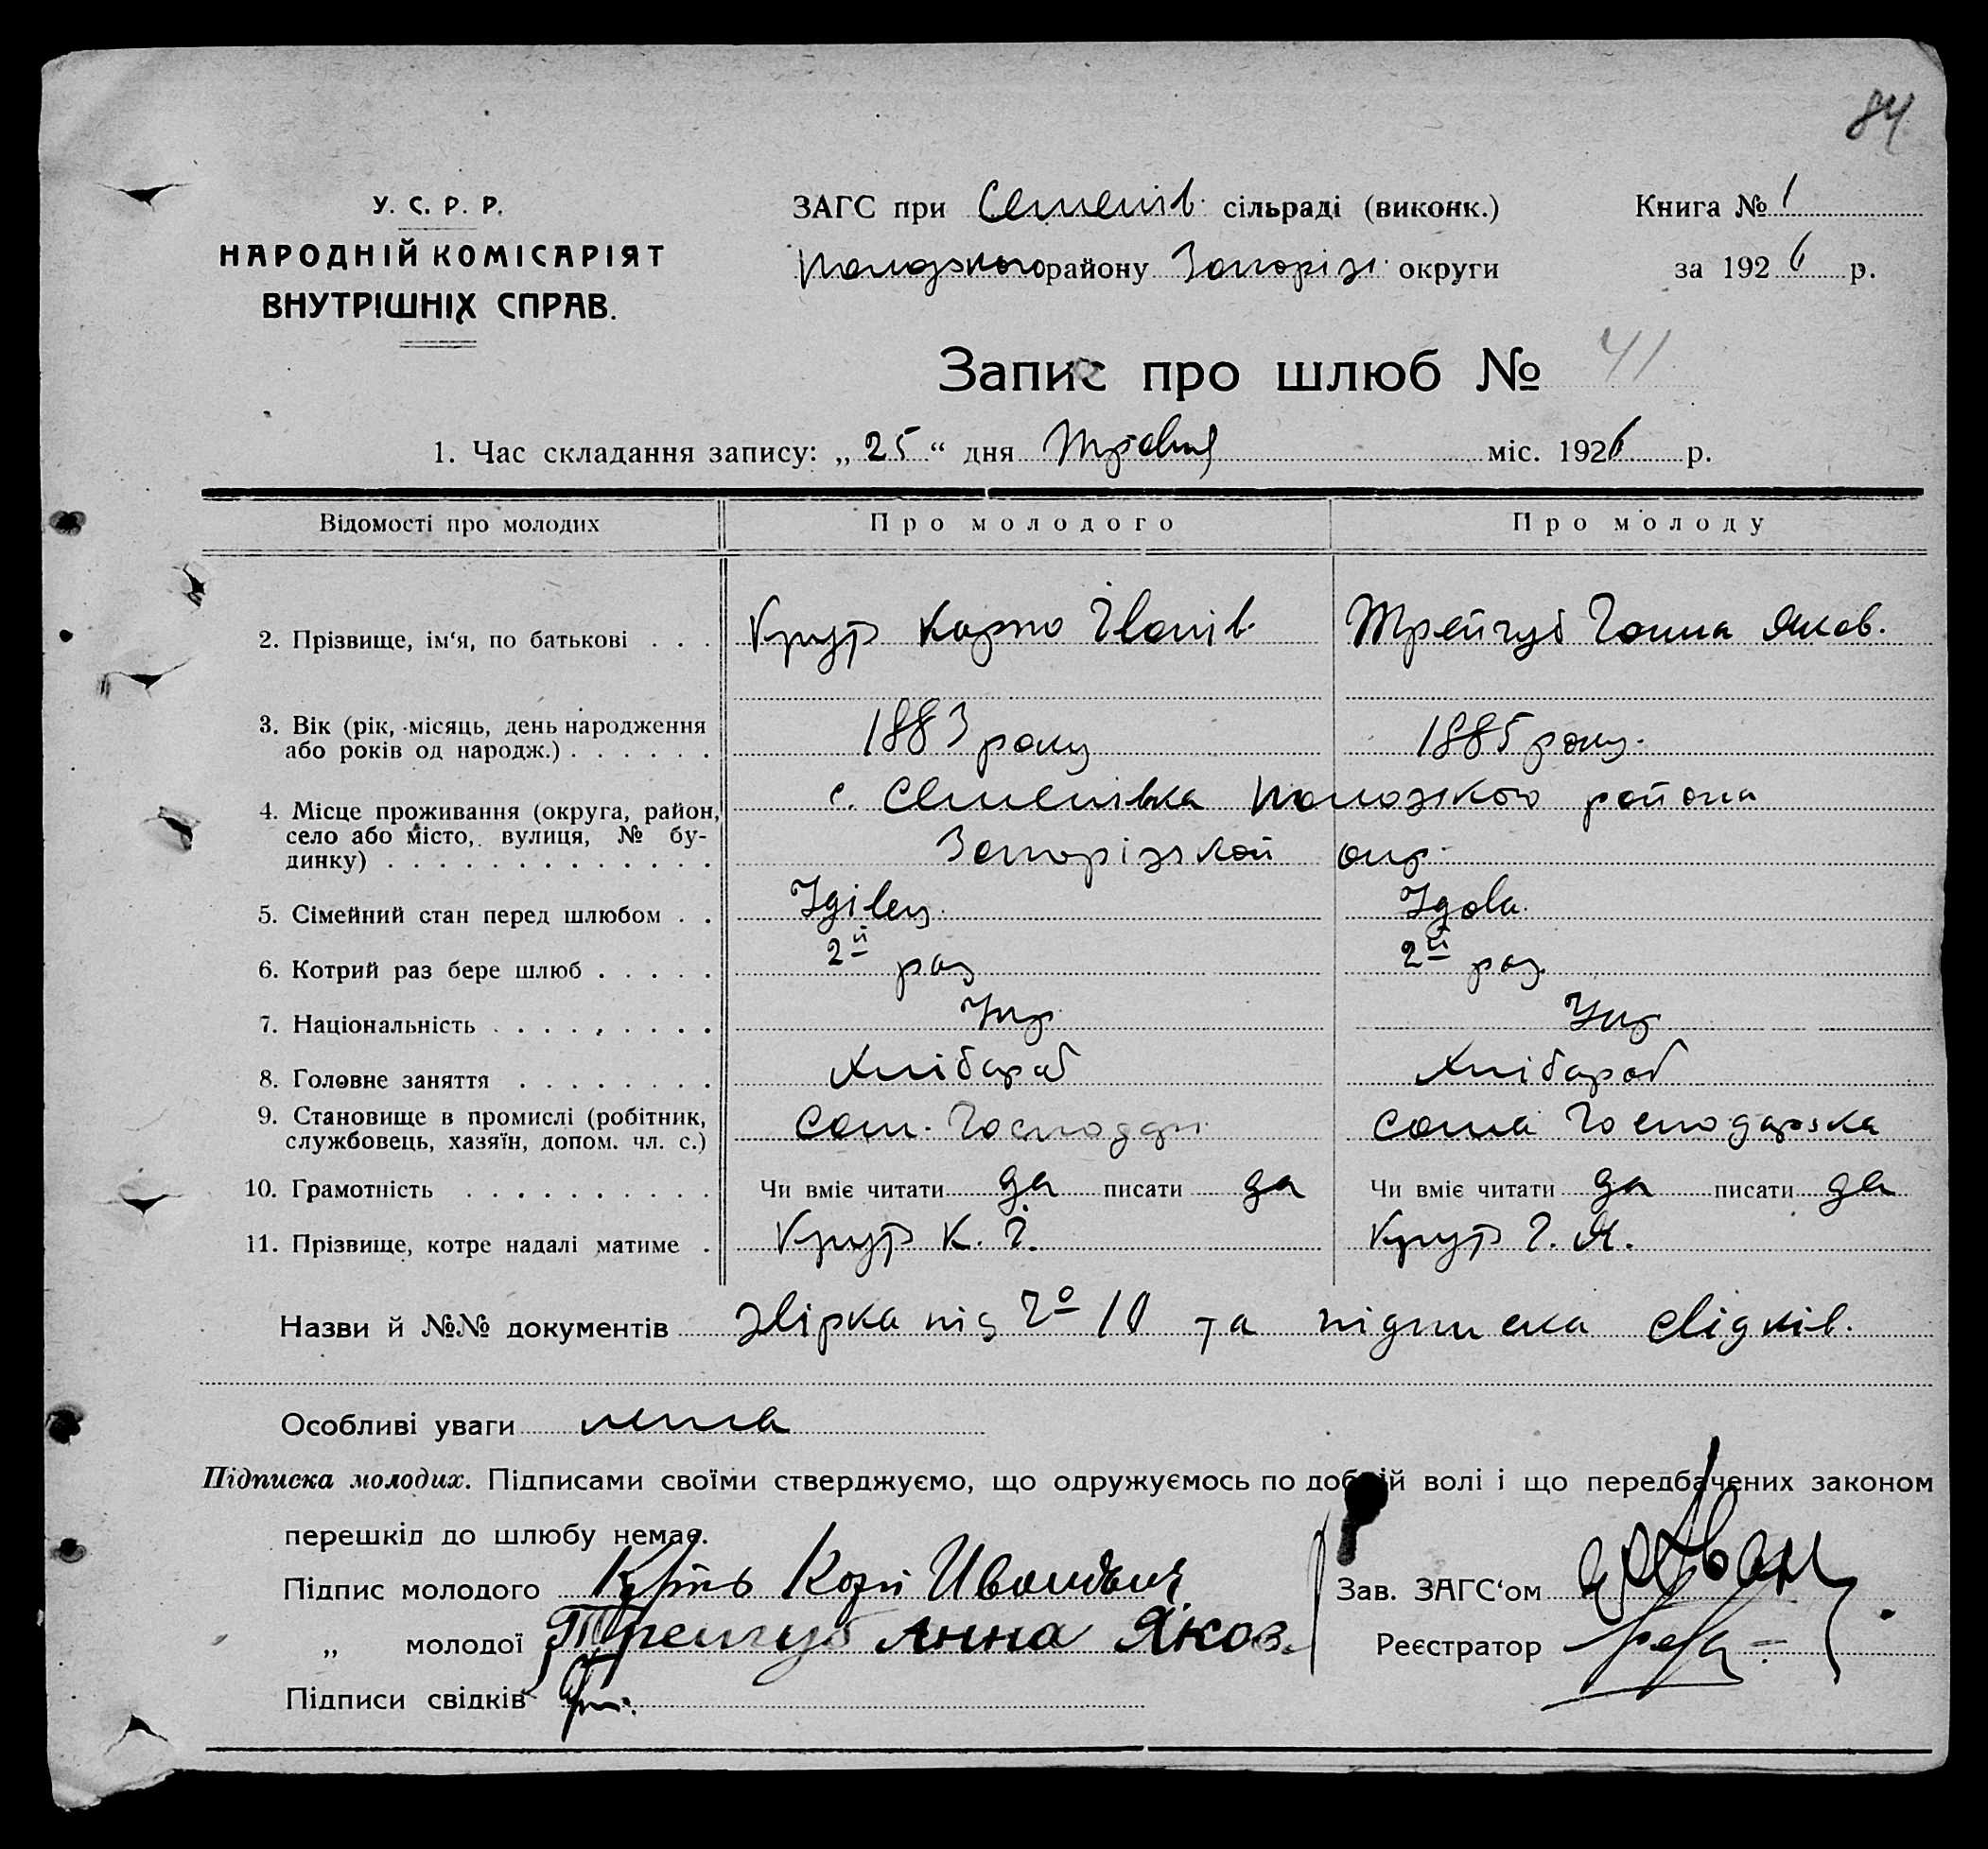 84
У. С. Р. Р.
НАРОДНІЙ КОМІСАРІЯТ
ВНУТРІШНІХ СПРАВ.
ЗАГС при Семенів. сільраді (виконк.)
Пологського району Запоріз. округи
Книга № 1
за 1926 р.
Запис про шлюб № 41
1. Час складання запису: „25“ дня Травня міс. 1926 р.
Відомості про молодих Про молодого Про молоду
2. Прізвище, ім‘я, по батькові . . . Карпо Іванів. Трейгуб Ганна Яков.
3. Вік (рік, місяць, день народження
або років од народж.) . . . . . . 1883 року 1885 року.
4. Місце проживання (округа, район,
село або місто, вулиця, № бу-
динку) . . . . . . . . . . . . .
с. Семенівка Положского района
Запорізской окр.
5. Сімейний стан перед шлюбом . . Удівец. Удова.
6. Котрий раз бере шлюб . . . . . 2й раз 2й раз
7. Національність . . . . . . . . . Укр Укр
8. Головне заняття . . . . . . . . Хлібароб Хлібароб
9. Становище в промислі (робітник,
службовець, хазяїн, допом. чл. с.) Сам. Господар. сама Господарька
10. Грамотність . . . . . . . . . . Чи вміє читати да писати да Чи вміє читати да писати да
11. Прізвище, котре надалі матиме . К. І. Г. Я.
Назви й №№ документів звірка під 10 та підписка свідків.
Особливі уваги нема
Підписка молодих. Підписами своїми стверджуємо, що одружуємось по добрій волі і що передбачених законом
перешкід до шлюбу немає.
Підпис молодого Иванович
„ молодої Трейгуб Анна Яков.
Підписи свідків
Зав. ЗАГС‘ом
Реєстратор